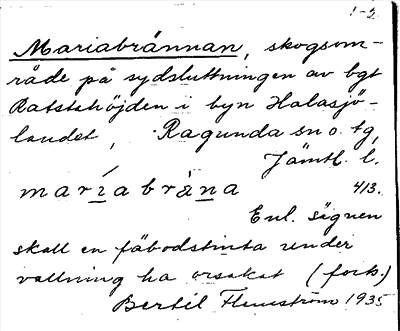 1-2.
Mariabrännan, skogsom-
råde på sydsluttningen av bgt
Ratstahöjden i byn Halasjö-
landet, Ragunda sn o. tg,
Jämtl. l.
maríabrä̀na 413.
Enl. sägnen
skall en fäbodstinta under
vallning ha orsakat (forts.)
Bertil Flemström 1935